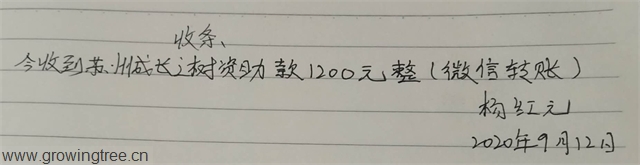 收条、
今收到苏州成长之树资助款1200元整(微信转账)
杨红元
2020年9月12日
www.growingtree.cn